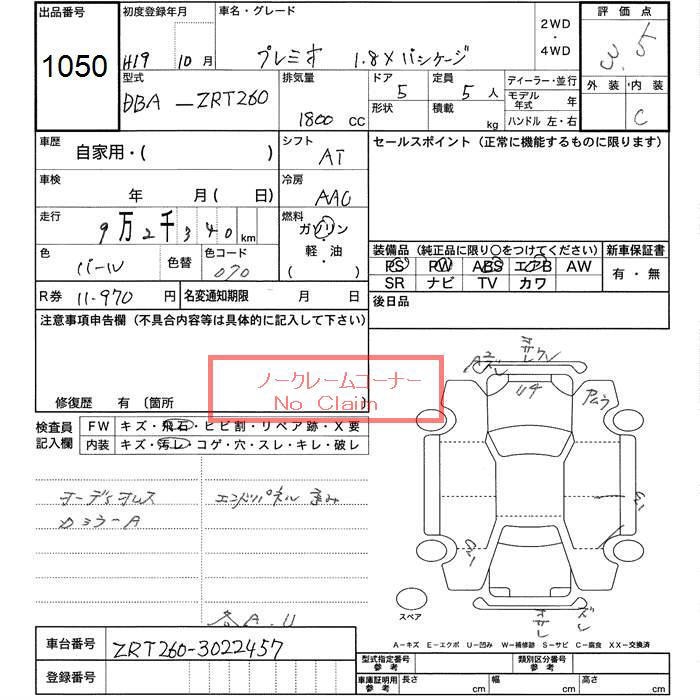 出品番号 初度登録年月 車名・グレード 2WD ・ 4WD 評価点
1050 H19 10月 プレミオ 1.8Xパッケージ 3.5
型式 排気量 ドア 定員 ディーラー・並行 外装 内装
DBA-ZRT260 1800 CC 5 5人 モデル年式 年 C
形状 積載 kg ハンドル 左・右
車歴 自家用・( ) シフト AT セールスポイント (正常に機能するものに限ります)
車検 年 月 ( 日) 冷房 AAC
走行 9万2千340km 燃料 ガソリン
軽・油
( )
色 パール 色替 色コード 070
装備品 (純正品に限り○をつけてください) 新車保証書
PS PW ABS エアB AW 有・無
SR ナビ TV カワ
R券 11,970円 名変通知期限 月 日 後日品
注意事項申告欄 (不具合内容等は具体的に記入して下さい)
ノークレームコーナー
No Claim
修復歴 有 〔箇所 〕
検査員記入欄 FW キズ・飛石・ヒビ割・リペア跡・X要
内装 キズ・汚レ・コゲ・穴・スレ・キレ・破レ
オーディオレス エンドパネル歪み
カラーA
A.U
U4
スペア
A-キズ E-エクボ U-凹み W-補修跡 S-サビ C-腐食 XX-交換済
車台番号 ZRT260-3022457
登録番号
型式指定番号 参考 類別区分番号 参考
車庫証明用 参考 長さ cm 幅 cm 高さ cm